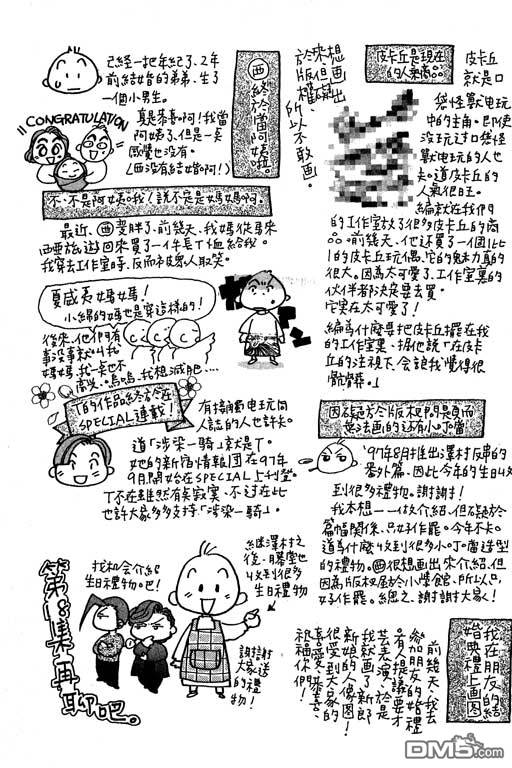 皮卡丘是現在
的人氣商品
皮卡丘
就是口
袋怪獸電玩
中的主角。即使
沒玩过口袋怪
獸电玩的人也
卡。這皮卡丘的
人氣很旺。
編就在我們
的工作室放了很多皮卡丘的商
品。前幾天、他还買了一個1比
1的皮卡丘玩偶、它的魅力真的
很大。因為太可愛了、工作室裏的
伙伴者都決定要去買。
它实在太可愛了！
編為什麼要把皮卡丘擺在我
的工作室裏、据他說「在皮卡
丘的注視下、会讓我覺得很
想画
出來但碍
於版權、所
以不敢画。
西終於當阿姨啦。
已經一把年紀了、2年
前結婚的弟弟、生了
一個小男生。
CONGRATULATION
真是恭喜啊！我當
阿姨了、但是一点
感覺也沒有。
(西沒有結婚啊！)
不、不是阿姨。我！說不定是媽媽呵。
最近、西変胖了、前幾天、我媽從馬來
西亞旅遊回來買了一件長T恤給我。
我穿去工作室時、反而被衆人取笑。
夏威夷媽媽！
小綿的媽也是穿這樣的！
後來、他們有
事沒事就叫我
媽媽、我一点也不
高兴、嗚嗚、我想減肥…
T的作品終於在
SPECIAL連載！
有接觸电玩同
人誌的人也許卡。
道「涉染一騎」就是T。
她的新宿情報團在97年
9月開始在SPECIAL上刊登。
T不在雖然有点寂寞、不过在此
也許大家多多支持「涉染一騎」。
因碍於版权問是頁而
無法画的还有小叮噹
'97年8月推出澤村兄弟的
番外篇、因此今年的生日收
到很多禮物。謝謝！
我本想一一做介紹、但碍於
篇幅関係、只好作罷。今年不卡。
道為什麼收到很多小叮噹造型
的禮物。西很想画出來介紹、但
因為版权屬於小學館、所以只
好作罷。總之、謝謝大家！
繼澤村之
後、騰堂也
收到很多
生日禮物
找机会介紹
生日禮物吧！
謝謝
大家送
的禮
物！
第18集再聊吧。
我在朋友的結
婚典禮上画图
前幾天、我去
參加朋友的婚禮
有人提議要才
芸表演、於是
我就画了新郎
新娘的人像图！
很受到大家的
喜愛、恭喜、
祝福你們！
DM5.com